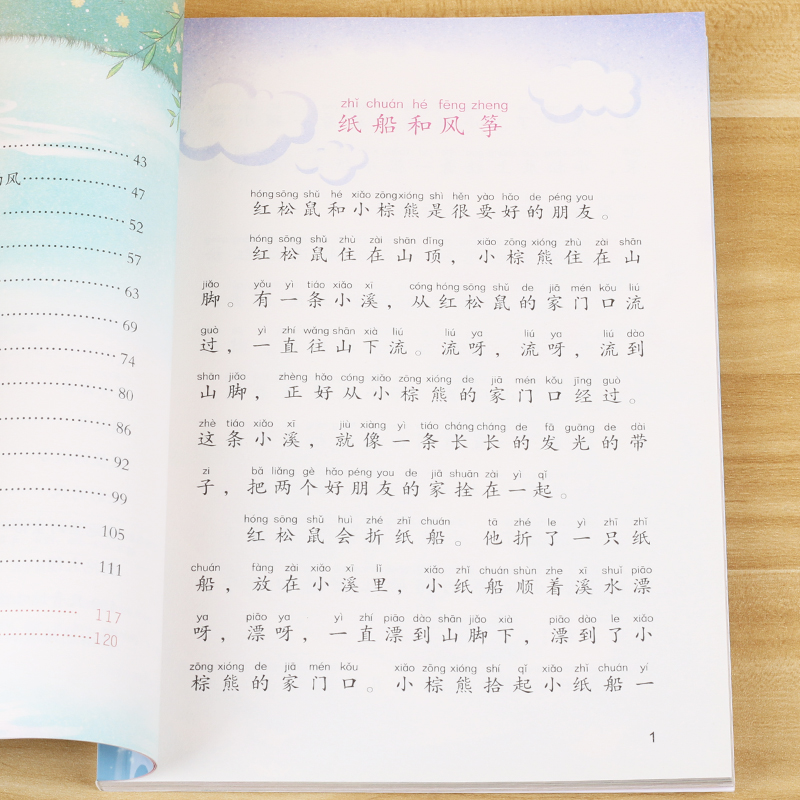 43
风
47
52
57
63
69
74
80
86
92
99
105
111
117
120
zhǐ chuán hé fēng zheng
纸船和风筝
hóng sōng shǔ hé xiǎo zōng xióng shì hěn yào hǎo de péng you
红松鼠和小棕熊是很要好的朋友。
hóng sōng shǔ zhù zài shān dǐng xiǎo zōng xióng zhù zài shān
红松鼠住在山顶，小棕熊住在山
jiǎo yǒu yì tiáo xiǎo xī cóng hóng sōng shǔ de jiā mén kǒu liú
脚。有一条小溪，从红松鼠的家门口流
guò yì zhí wǎng shān xià liú liú ya liú ya liú dào
过，一直往山下流。流呀，流呀，流到
shān jiǎo zhèng hǎo cóng xiǎo zōng xióng de jiā mén kǒu jīng guò
山脚，正好从小棕熊的家门口经过。
zhè tiáo xiǎo xī jiù xiàng yì tiáo cháng cháng de fā guāng de dài
这条小溪，就像一条长长的发光的带
zi bǎ liǎng gè hǎo péng you de jiā shuān zài yì qǐ
子，把两个好朋友的家拴在一起。
hóng sōng shǔ huì zhé zhǐ chuán tā zhé le yì zhī zhǐ
红松鼠会折纸船。他折了一只纸
chuán fàng zài xiǎo xī lǐ xiǎo zhǐ chuán shùn zhe xī shuǐ piāo
船，放在小溪里，小纸船顺着溪水漂
ya piāo ya yì zhí piāo dào shān jiǎo xià piāo dào le xiǎo
呀，漂呀，一直漂到山脚下，漂到了小
zōng xióng de jiā mén kǒu xiǎo zōng xióng shí qǐ xiǎo zhǐ chuán yí
棕熊的家门口。小棕熊拾起小纸船一
1